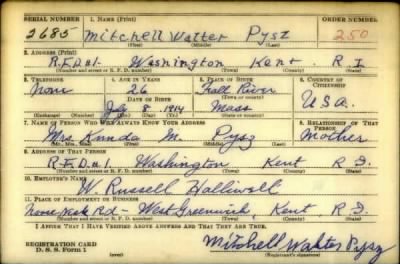 SERIAL NUMBER 1. NAME (Print) ORDER NUMBER
2685 Mitchell Walter Pysz 250
(First) (Middle) (Last)
2. ADDRESS (Print)
R.F.D#1- Washington Kent R.I.
(Number and street or R. F. D. number) (Town) (County) (State)
3. TELEPHONE 4. AGE IN YEARS 5. PLACE OF BIRTH 6. COUNTRY OF CITIZENSHIP
None 26 Fall River
DATE OF BIRTH (Town or county) U.S.A.
July 8 1914 Mass
(Exchange) (Number) (Mo.) (Day) (Yr.) (State or country)
7. NAME OF PERSON WHO WILL ALWAYS KNOW YOUR ADDRESS 8. RELATIONSHIP OF THAT PERSON
Mrs. M. Pysz Mother
(Mr., Mrs., Miss) (First) (Middle) (Last)
9. ADDRESS OF THAT PERSON
R.F.D#1 Washington Kent R.I.
(Number and street or R. F. D. number) (Town) (County) (State)
10. EMPLOYER'S NAME
W. Russell Halliwell
11. PLACE OF EMPLOYMENT OR BUSINESS
Rd- West Greenwich, Kent R.I.
(Number and street or R. F. D. number) (Town) (County) (State)
I AFFIRM THAT I HAVE VERIFIED ABOVE ANSWERS AND THAT THEY ARE TRUE.
REGISTRATION CARD
D. S. S. Form 1 Mitchell Walter Pysz
(Registrant's signature)